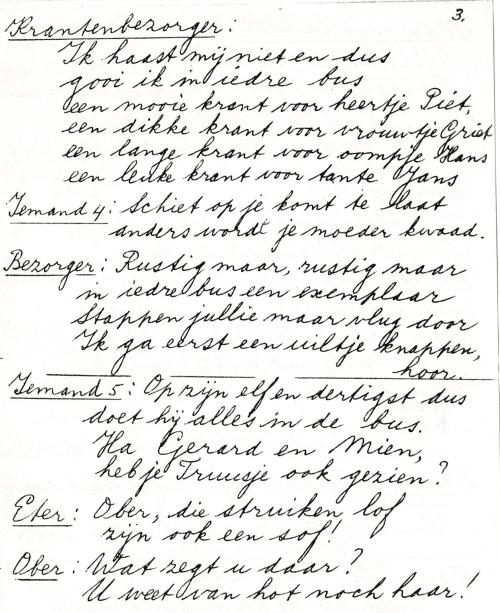 3.
Krantenbezorger:
Ik haast mij niet en dus
gooi ik in iedre bus
een mooie krant voor heertje Piet,
een dikke krant voor vrouwtje Griet
een lange krant voor oompje Hans
een leuke krant voor tante Jans
Iemand 4: Schiet op je komt te laat
anders wordt je moeder kwaad.
Bezorger: Rustig maar, rustig maar
in iedre bus een exemplaar
Stappen jullie maar vlug door
Ik ga eerst een uiltje knappen,
hoor.
Iemand 5: Op zijn elf en dertigst dus
doet hij alles in de bus.
Ha Gerard en Mien,
heb je Truusje ook gezien?
Eter: Ober, die struiken lof
zijn ook een sof!
Ober: Wat zegt u daar?
U weet van hot noch haar!